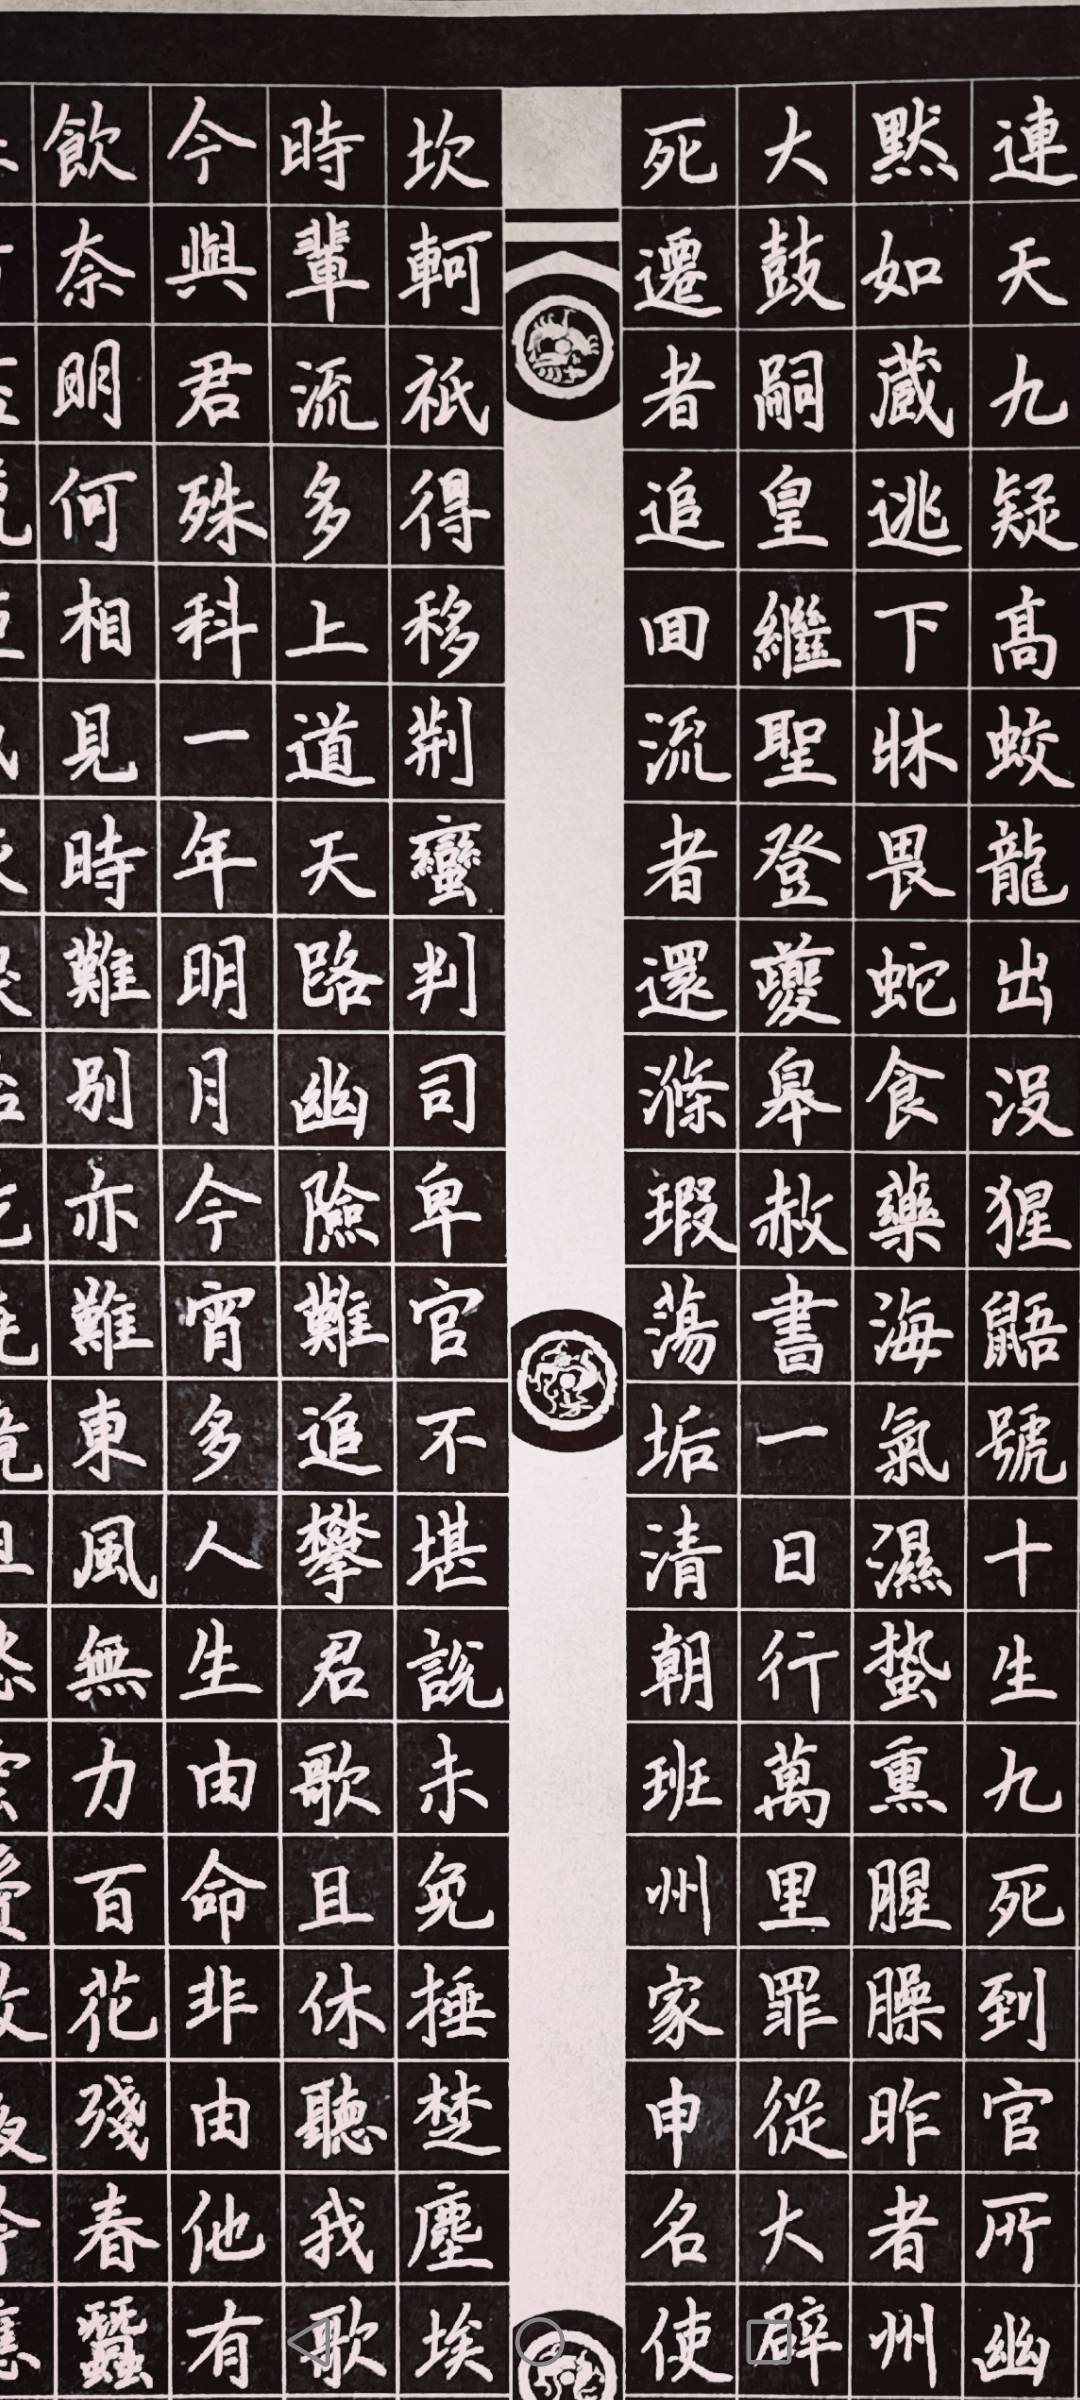 連天九疑高蛟龍出没猩鼯號十生九死到官所幽
黙如蔵逃下牀畏蛇食藥海氣濕蟄熏腥臊昨者州
大鼓嗣皇繼聖登夔皋赦書一日行萬里罪從大辟
死遷者追回流者還滌瑕蕩垢清朝班州家申名使
坎軻祗得移荆蠻判司卑官不堪說未免捶楚塵埃
時輩流多上道天路幽險難追攀君歌且休聽我歌
今與君殊科一年明月今宵多人生由命非由他有
飲奈明何相見時難別亦難東風無力百花殘春蠶